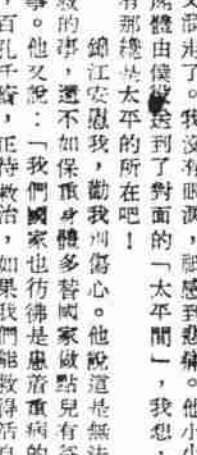 又離開了。我沒有眼淚，祇感到悲痛。他小小
屍體由僕役送到了對面的「太平間」，我想，
有那纔是太平的所在吧！
錦江安慰我，勸我別傷心。他說這是無法
救的事，還不如保重身體多替國家做點兒有益
事。他又說：「我們國家也彷彿是患着重病的
百孔千瘡，正待救治，如果我們能救得活自